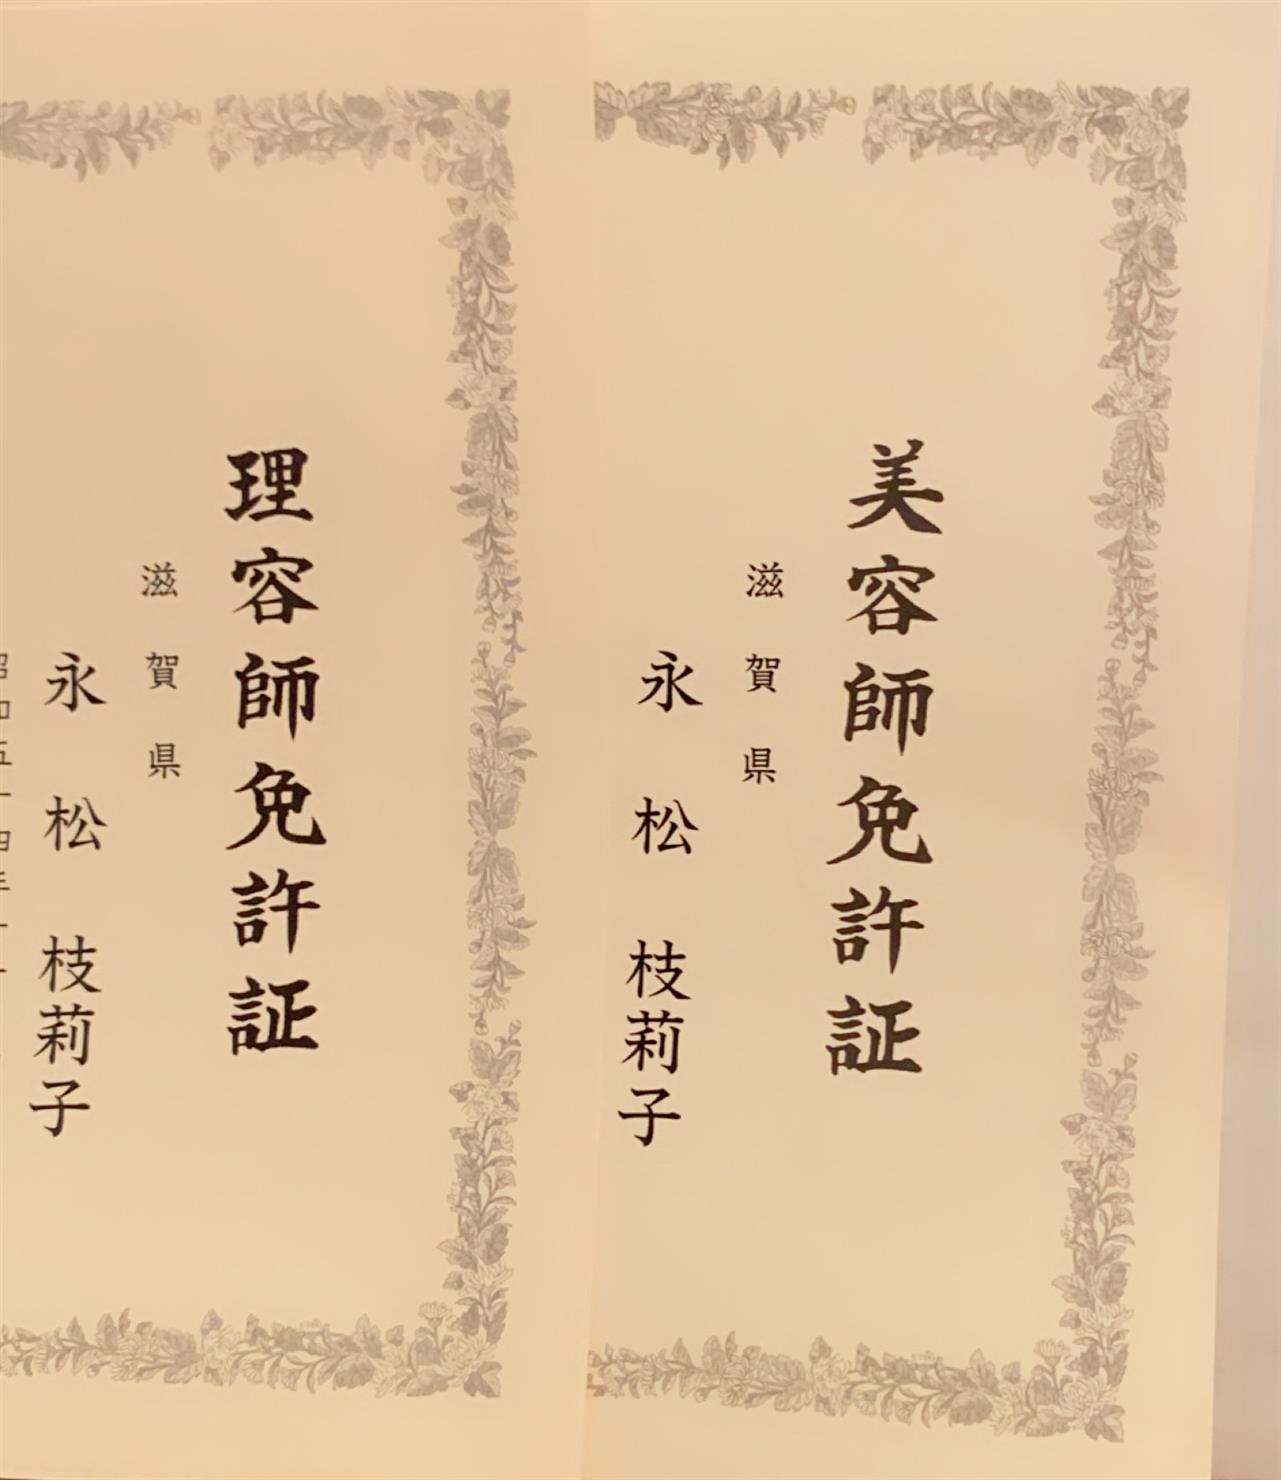 美容師免許証
滋賀県
永松 枝莉子
理容師免許証
滋賀県
永松 枝莉子